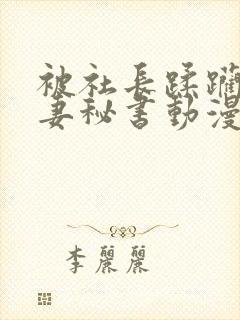 被社長蹂躪
妻秘書動漫
李麗麗